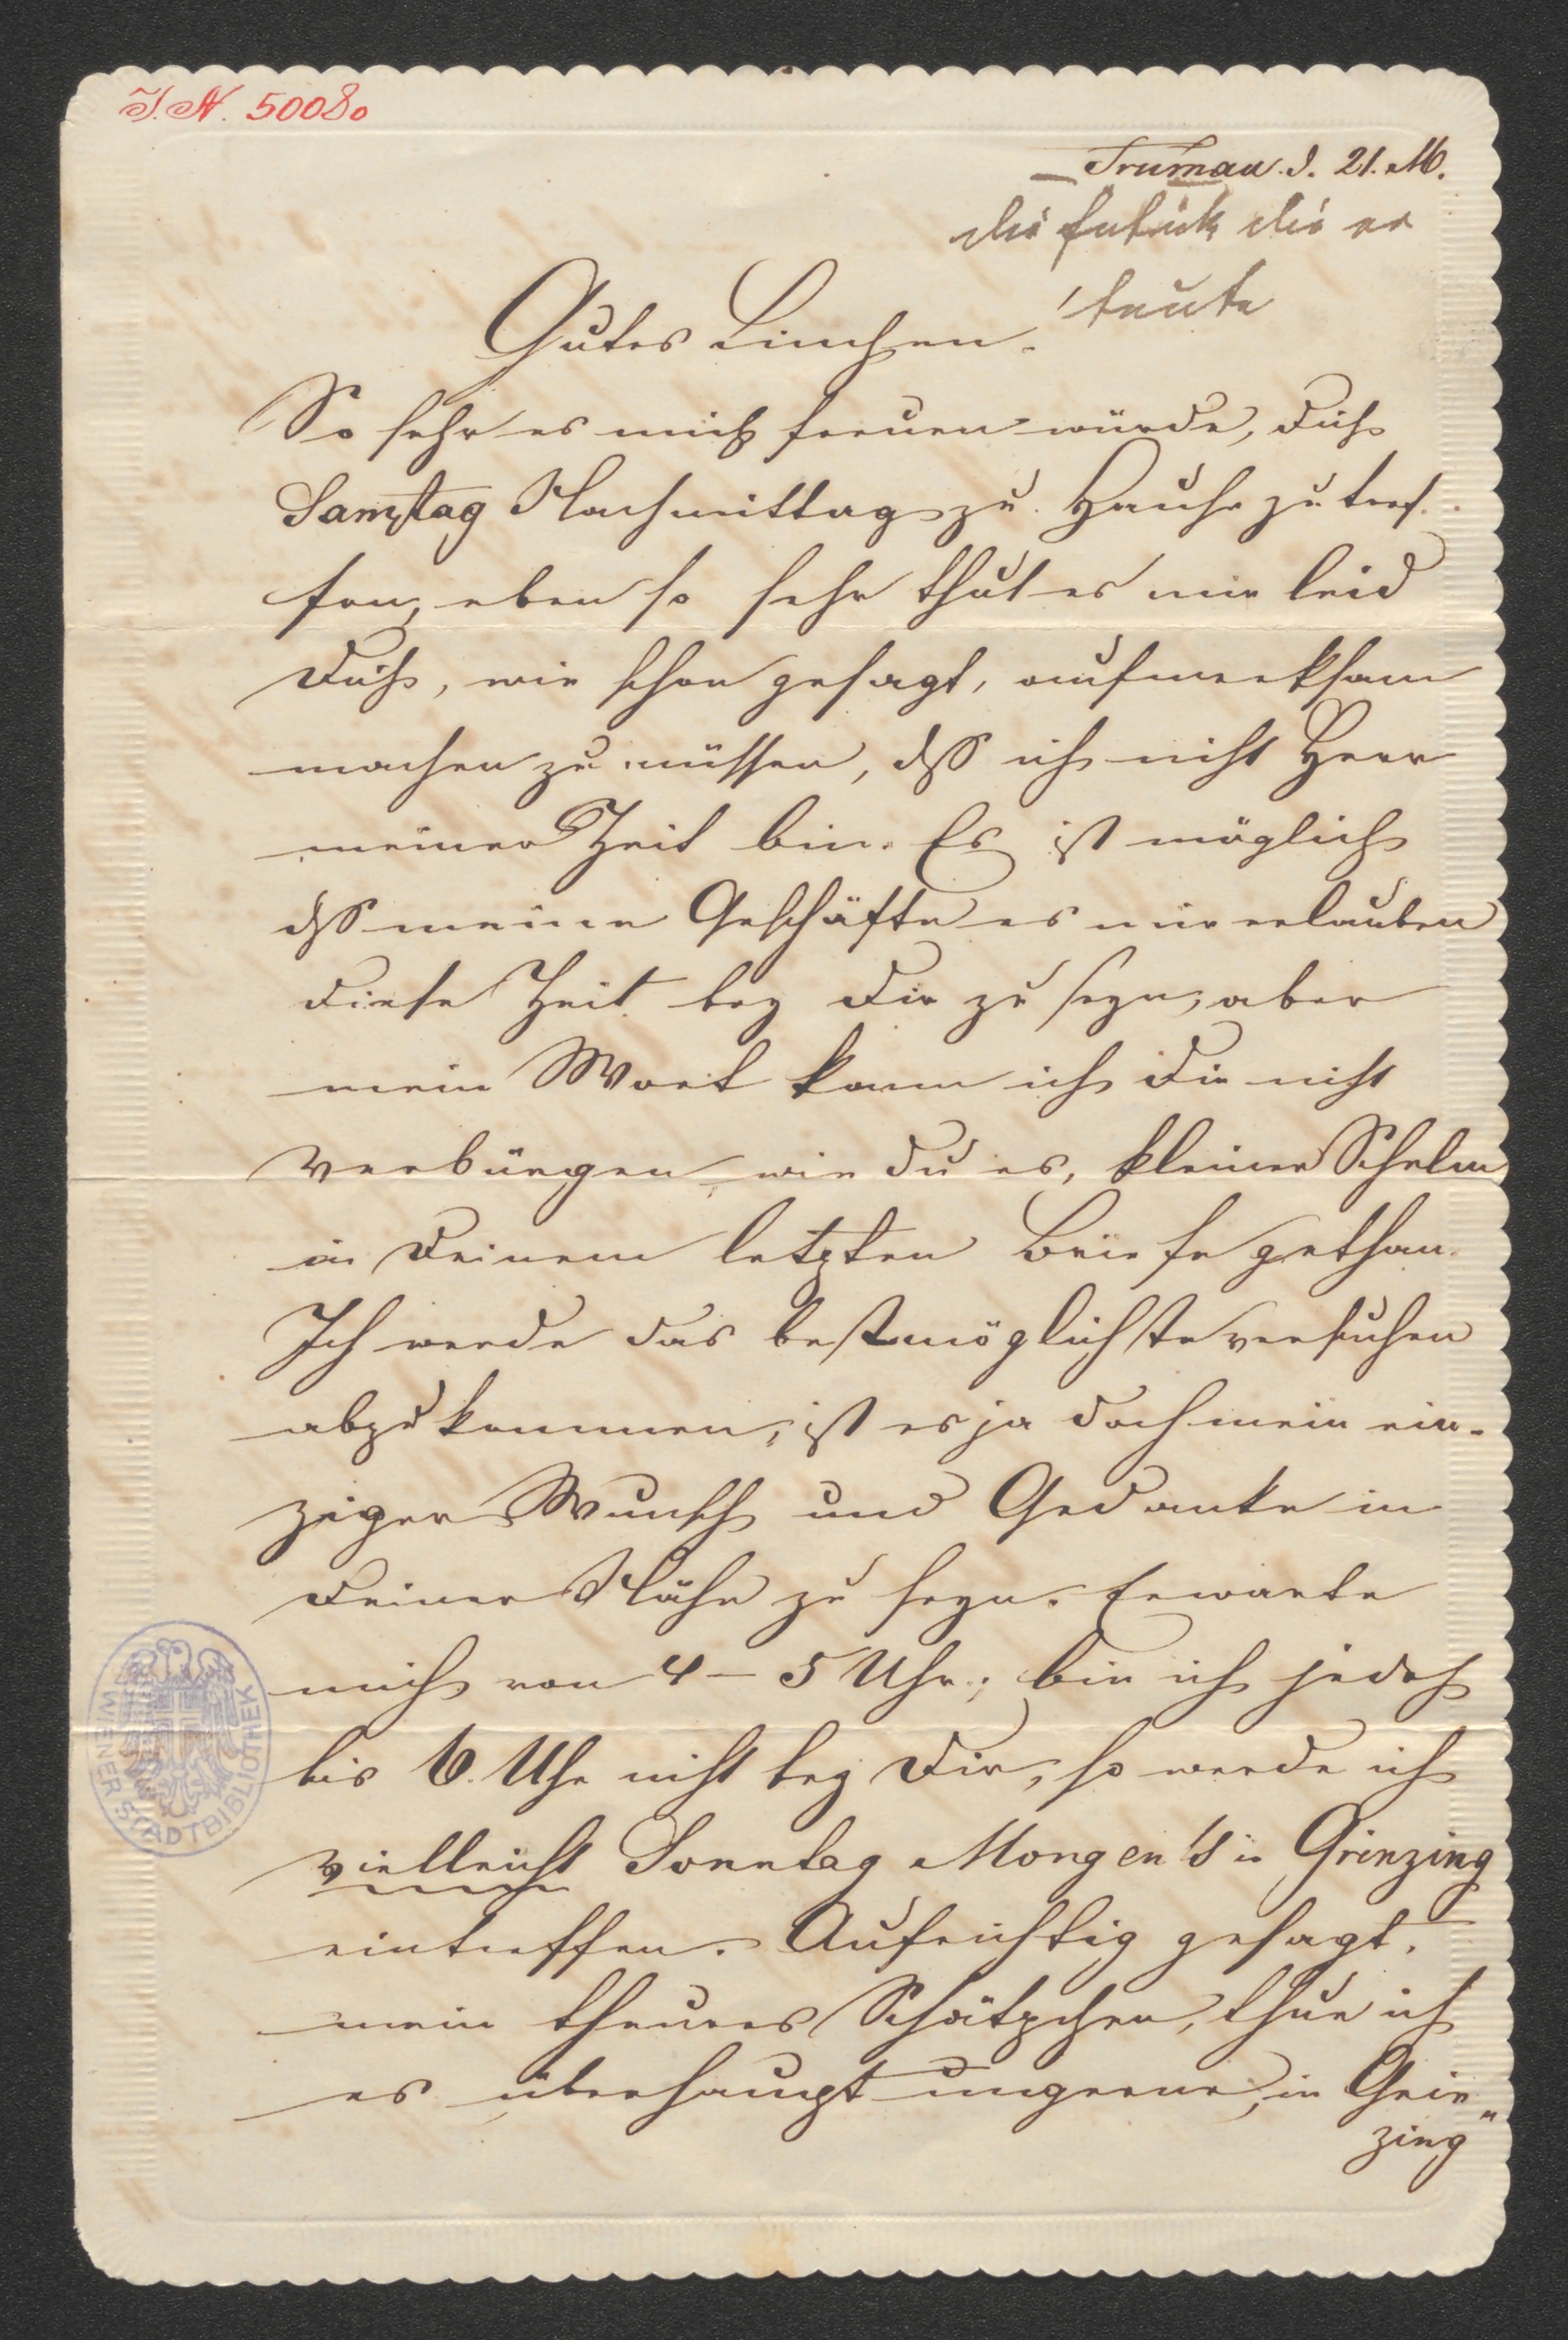 I.N. 50080
Trumau. d. 21. M.
die fabrik die er
baute
Gutes Linchen.
So sehr es mich freuen würde, Dich
Samstag Nachmittag zu Hause zu tref-
fen, eben so sehr thut es mir leid
Dich, wie schon gesagt, aufmerksam
machen zu müssen, dß ich nicht Herr
meiner Zeit bin. Es ist möglich
dß meine Geschäfte es mir erlauben
diese Zeit bey Dir zu seyn; aber
mein Wort kann ich Dir nicht
verbürgen, wie Du es, kleiner Schelm
in Deinem letzten Briefe gethan.
Ich werde das bestmöglichste versuchen
abzukommen, ist es ja doch mein ein-
ziger Wunsch und Gedanke in
Deiner Nähe zu seyn. Erwarte
mich von 4 – 5 Uhr; bin ich jedoch
bis 6. Uhr nicht bey Dir, so werde ich
vielleicht Sonntag Morgen's in Grinzing
eintreffen. Aufrichtig gesagt,
mein theures Schätzchen, thue ich
es überhaupt ungerne, in Grin"
zing
WIENER STADTBIBLIOTHEK